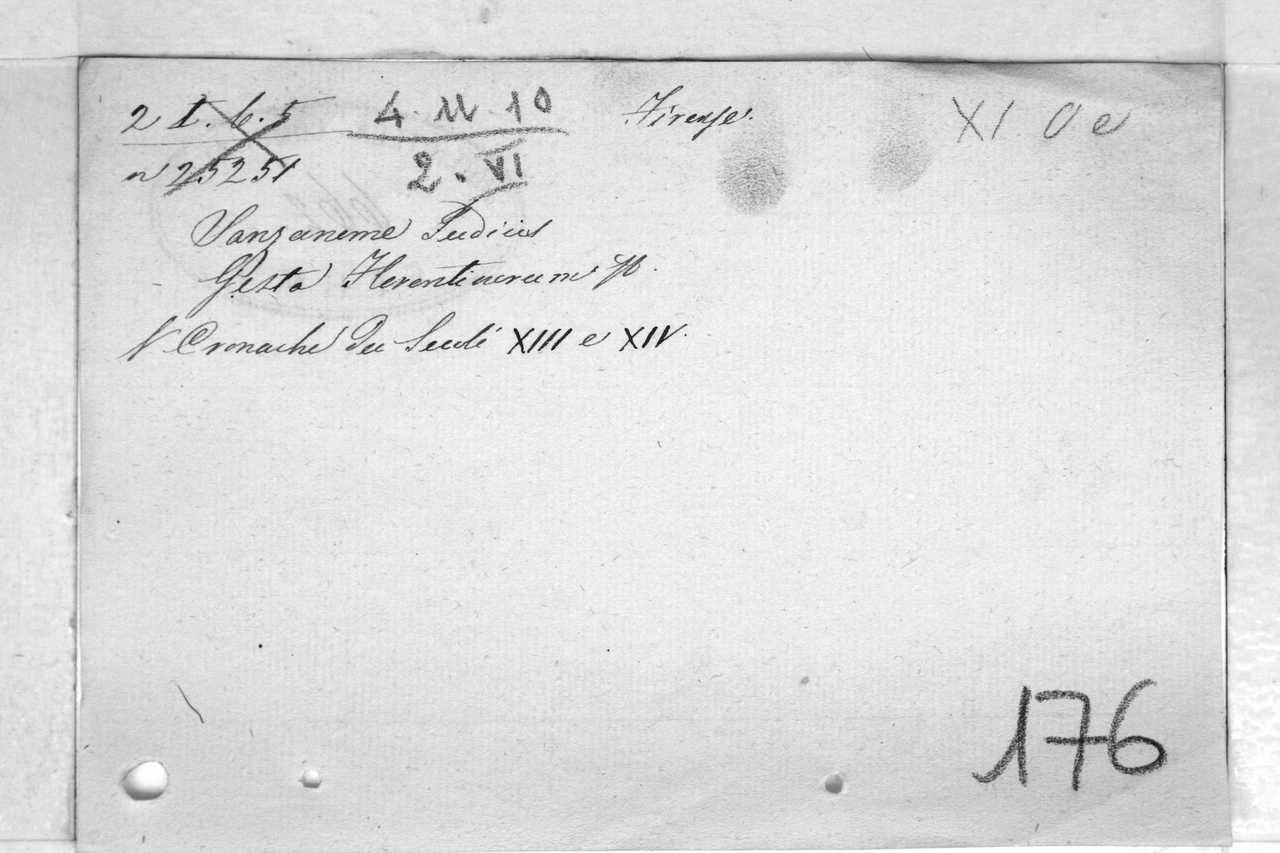 2 I. 6. 5 4. 11. 10 Firenze. XI O e
n 25251 2. VI
Sanzanome Iudicis
Gesta Florentinorum
V Cronache dei Secoli XIII e XIV.
176